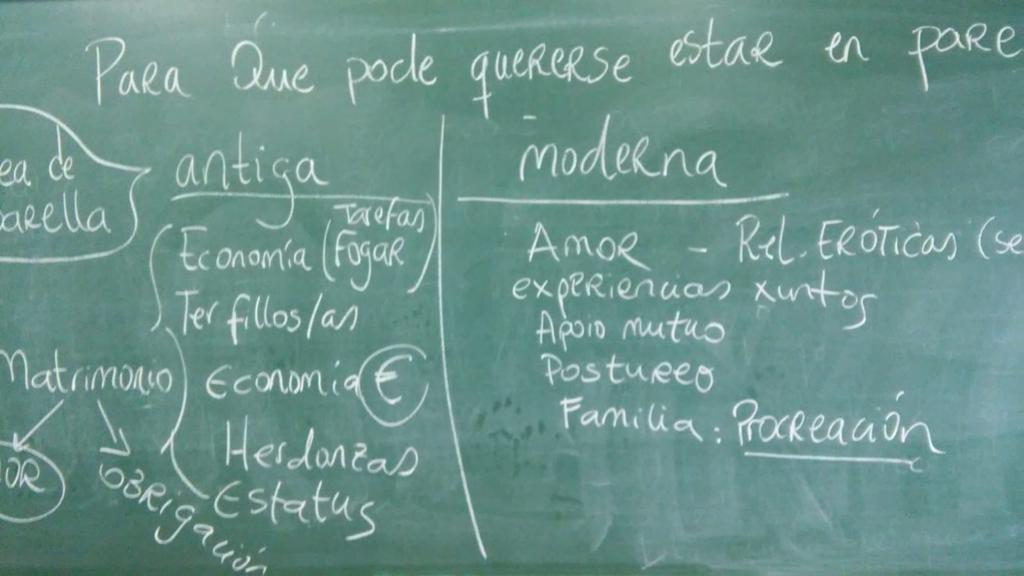 Para Que pode quererse estar en pare
ea de
parella
antiga
Economía (Tarefas
Fogar)
Ter fillos/as
Matrimonio
Economía €
Herdanzas
Estatus
OR
OBRIgación
moderna
Amor - Rel. Eróticas (se
experiencias xuntos
Apoio mutuo
Postureo
Familia: Procreación